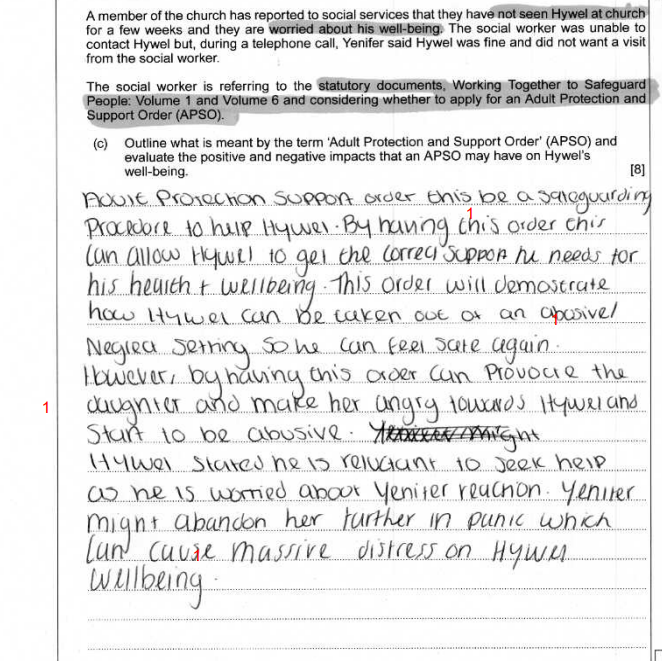 A member of the church has reported to social services that they have not seen Hywel at church
for a few weeks and they are worried about his well-being. The social worker was unable to
contact Hywel but, during a telephone call, Yenifer said Hywel was fine and did not want a visit
from the social worker.
The social worker is referring to the statutory documents, Working Together to Safeguard
People: Volume 1 and Volume 6 and considering whether to apply for an Adult Protection and
Support Order (APSO).
(c) Outline what is meant by the term 'Adult Protection and Support Order' (APSO) and
evaluate the positive and negative impacts that an APSO may have on Hywel's
well-being. [8]
Adult Protection Support order this be a safeguarding
Procedure to help Hywel. By having this order this
1
can allow Hywel to get the correct support he needs for
his health + wellbeing. This order will demostrate
how Hywel can be taken out of an abusive/
Neglect setting so he can feel safe again.
However, by having this order can provocte the
1 daughter and make her angry towards Hywel and
Start to be abusive. Might
Hywel stated he is reluctant to seek help
as he is worried about Yenifer reaction. Yenifer
might abandon her further in panic which
can cause massive distress on Hywel
wellbeing.